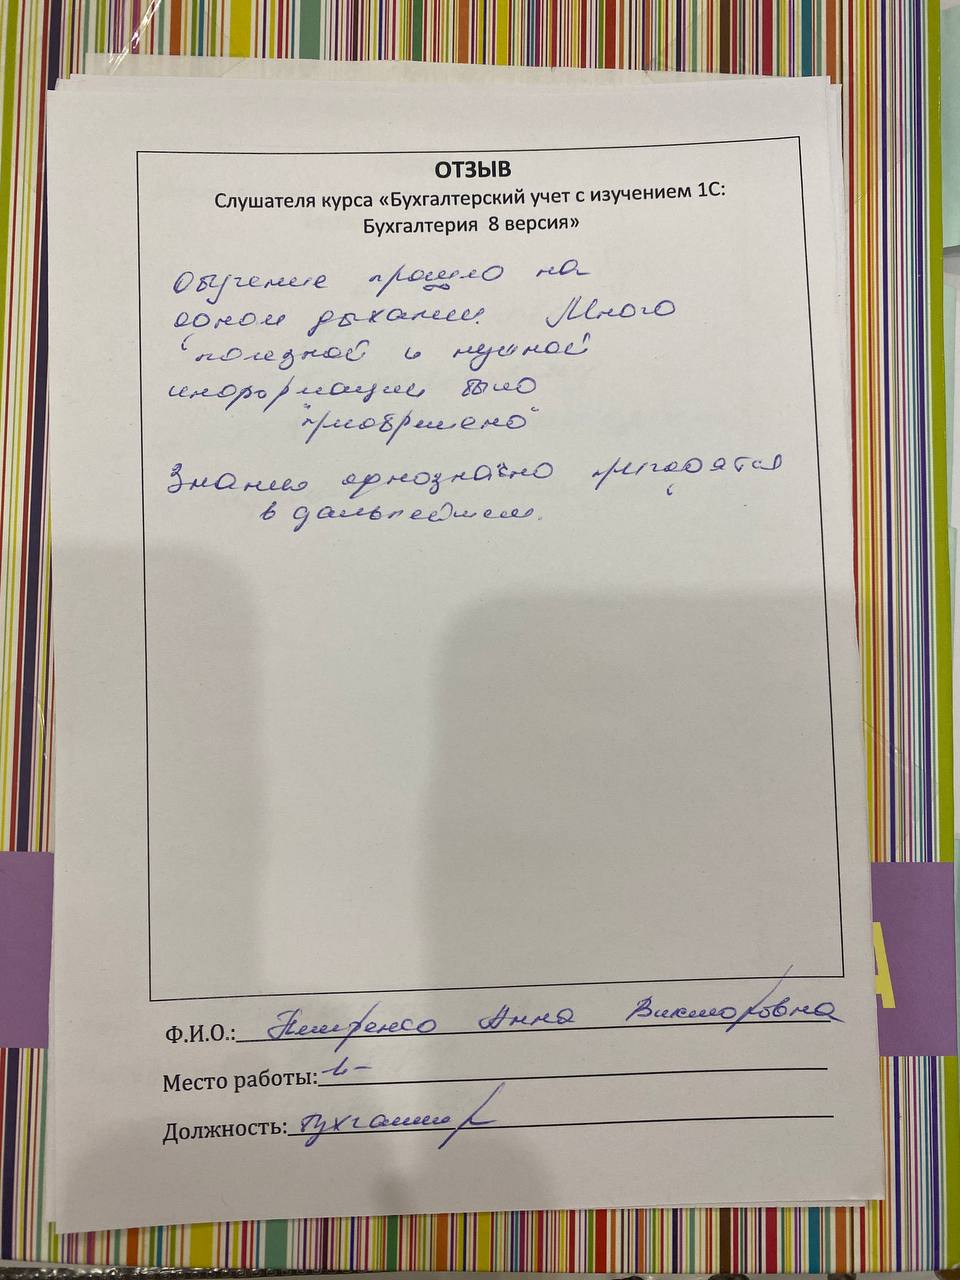 ОТЗЫВ
Слушателя курса «Бухгалтерский учет с изучением 1С:
Бухгалтерия 8 версия»
Обучение прошло на
одном дыхании. Много
полезной и нужной
информации было
"приобретено"
Знания однозначно пригодятся
в дальнейшем.
А
Ф.И.О.: Анна Викторовна
Место работы:
Должность: бухгалтер